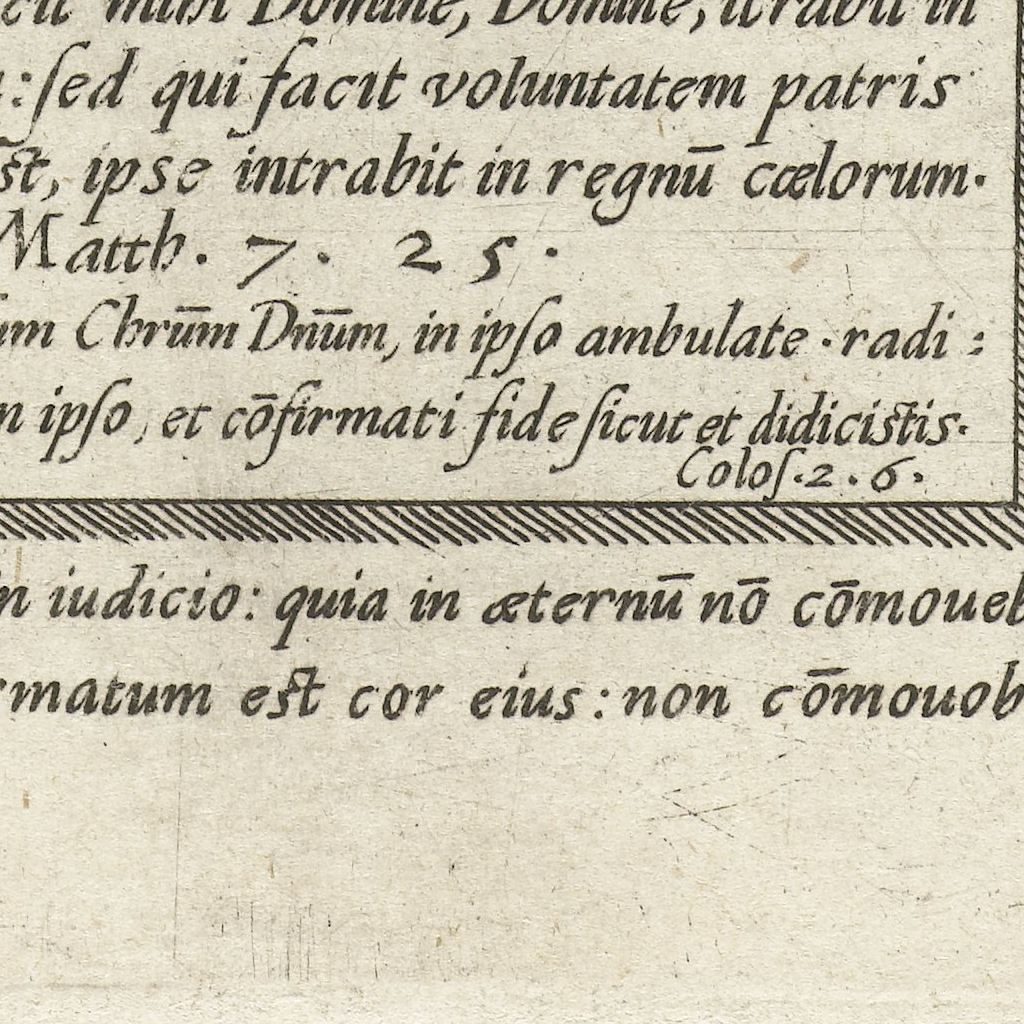 mihi Domine, Domine, itrabit in
: sed qui facit voluntatem patris
st, ipse intrabit in regnū cælorum.
Matth. 7. 25.
um Chrūm Dnūm, in ipso ambulate. radi:
n ipso, et cōfirmati fide sicut et didicistis.
Colos. 2. 6.
in iudicio: quia in æternū nō cōmoueb
rmatum est cor eius: non cōmouob